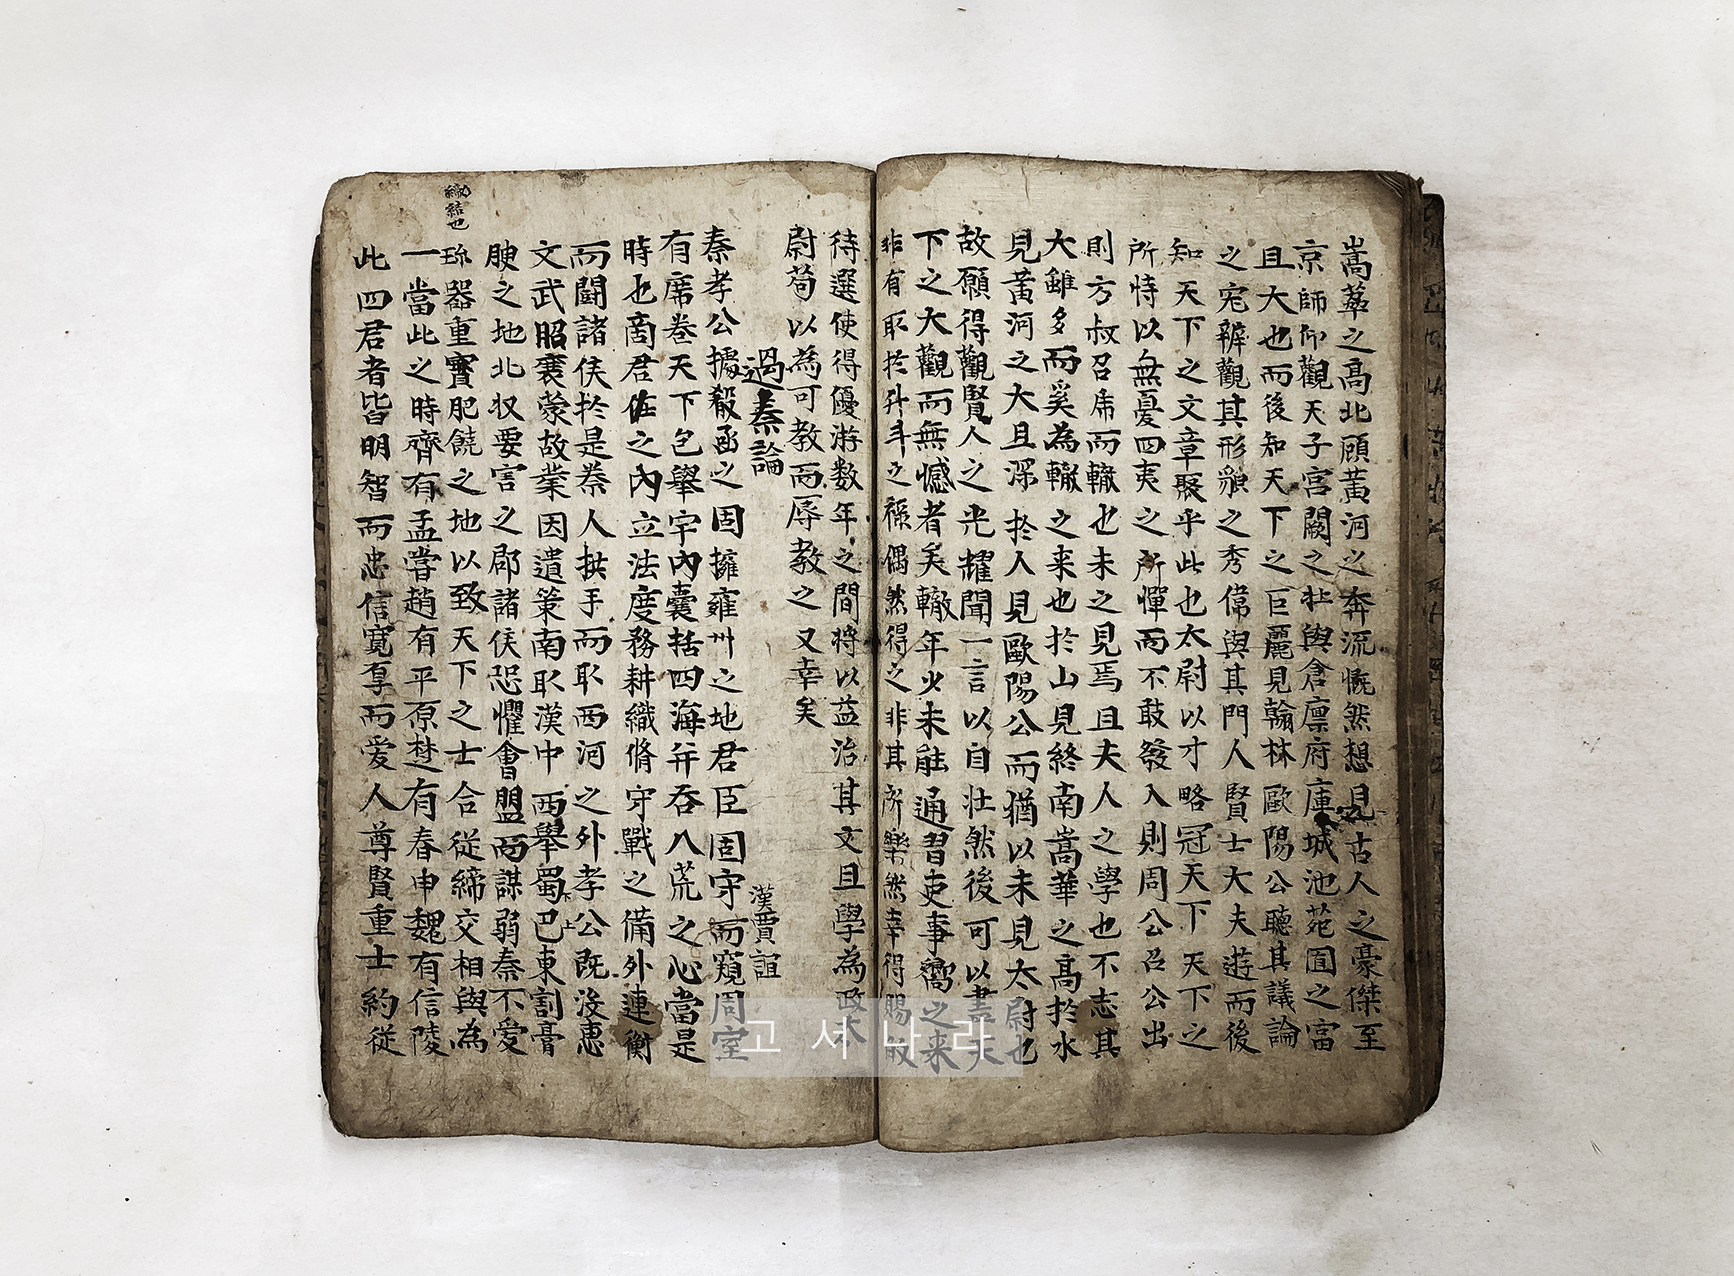 嵩華之高北顧黃河之奔流慨然想見古人之豪傑至
京師仰觀天子宮闕之壯與倉廩府庫城池苑囿之富
且大也而後知天下之巨麗見翰林歐陽公聽其議論
之宏辨觀其形貌之秀偉與其門人賢士大夫遊而後
知天下之文章聚乎此也太尉以才略冠天下天下之
所恃以無憂四夷之所憚而不敢發入則周公召公出
則方叔召席而轍也未之見焉且夫人之學也不志其
大雖多而奚為轍之来也於山見終南嵩華之高於水
見黃河之大且深於人見歐陽公而猶以未見太尉也
故願得觀賢人之光耀聞一言以自壯然後可以盡天
下之大觀而無憾者矣轍年少未能通習吏事嚮之来
非有取於升斗之祿偶然得之非其所樂然幸得賜歸
待選使得優游数年之間將以益治其文且學為政太
尉苟以為可教而辱教之又幸矣
過秦論 漢賈誼
秦孝公據殽函之固擁雍州之地君臣固守而窺周室
有席卷天下包舉宇內囊括四海并吞八荒之心當是
時也商君佐之內立法度務耕織脩守戰之備外連衡
而鬪諸侯於是秦人拱手而取西河之外孝公既沒惠
文武昭襄蒙故業因遺策南取漢中西舉蜀巴東割膏
下上
腴之地北収要害之郡諸侯恐懼會盟而謀弱秦不愛
珎器重寶肥饒之地以致天下之士合從締交相與為
締結也
一當此之時齊有孟嘗趙有平原楚有春申魏有信陵
此四君者皆明智而忠信寬厚而爱人尊賢重士約從
고서나라